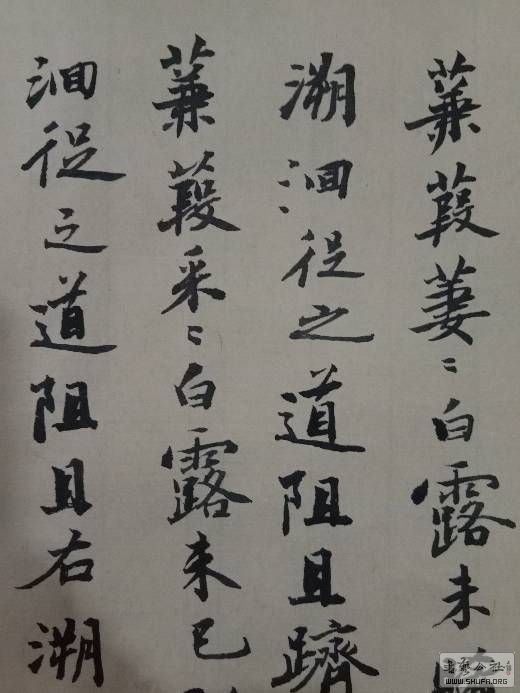 蒹葭萋〻白露未
溯洄從之道阻且躋
蒹葭采〻白露未已
洄從之道阻且右溯
書藝公社
WWW.SHUFA.ORG